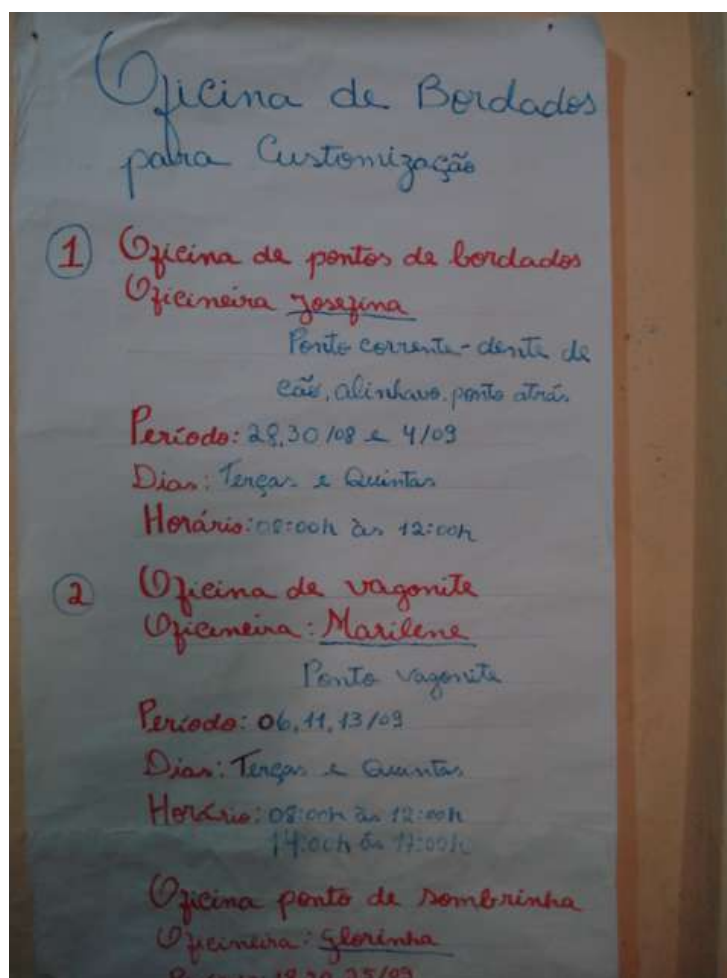 Oficina de Bordados
para Customização
1 Oficina de pontos de bordados
Oficineira Josefina
Ponto corrente - dente de
cão, alinhavo, ponto atrás
Período: 28,30/08 e 4/09
Dias: Terças e Quintas
Horário: 08:00h às 12:00h
2 Oficina de vagonite
Oficineira: Marilene
Ponto vagonite
Período: 06, 11, 13/09
Dias: Terças e Quintas
Horário: 08:00h às 12:00h
14:00h ás 17:00h
Oficina ponto de sombrinha
Oficineira: Glorinha